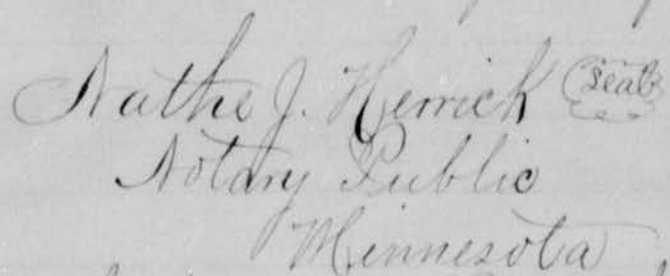 Nathe J. Herrick (Seal)
Notary Public
Minnesota